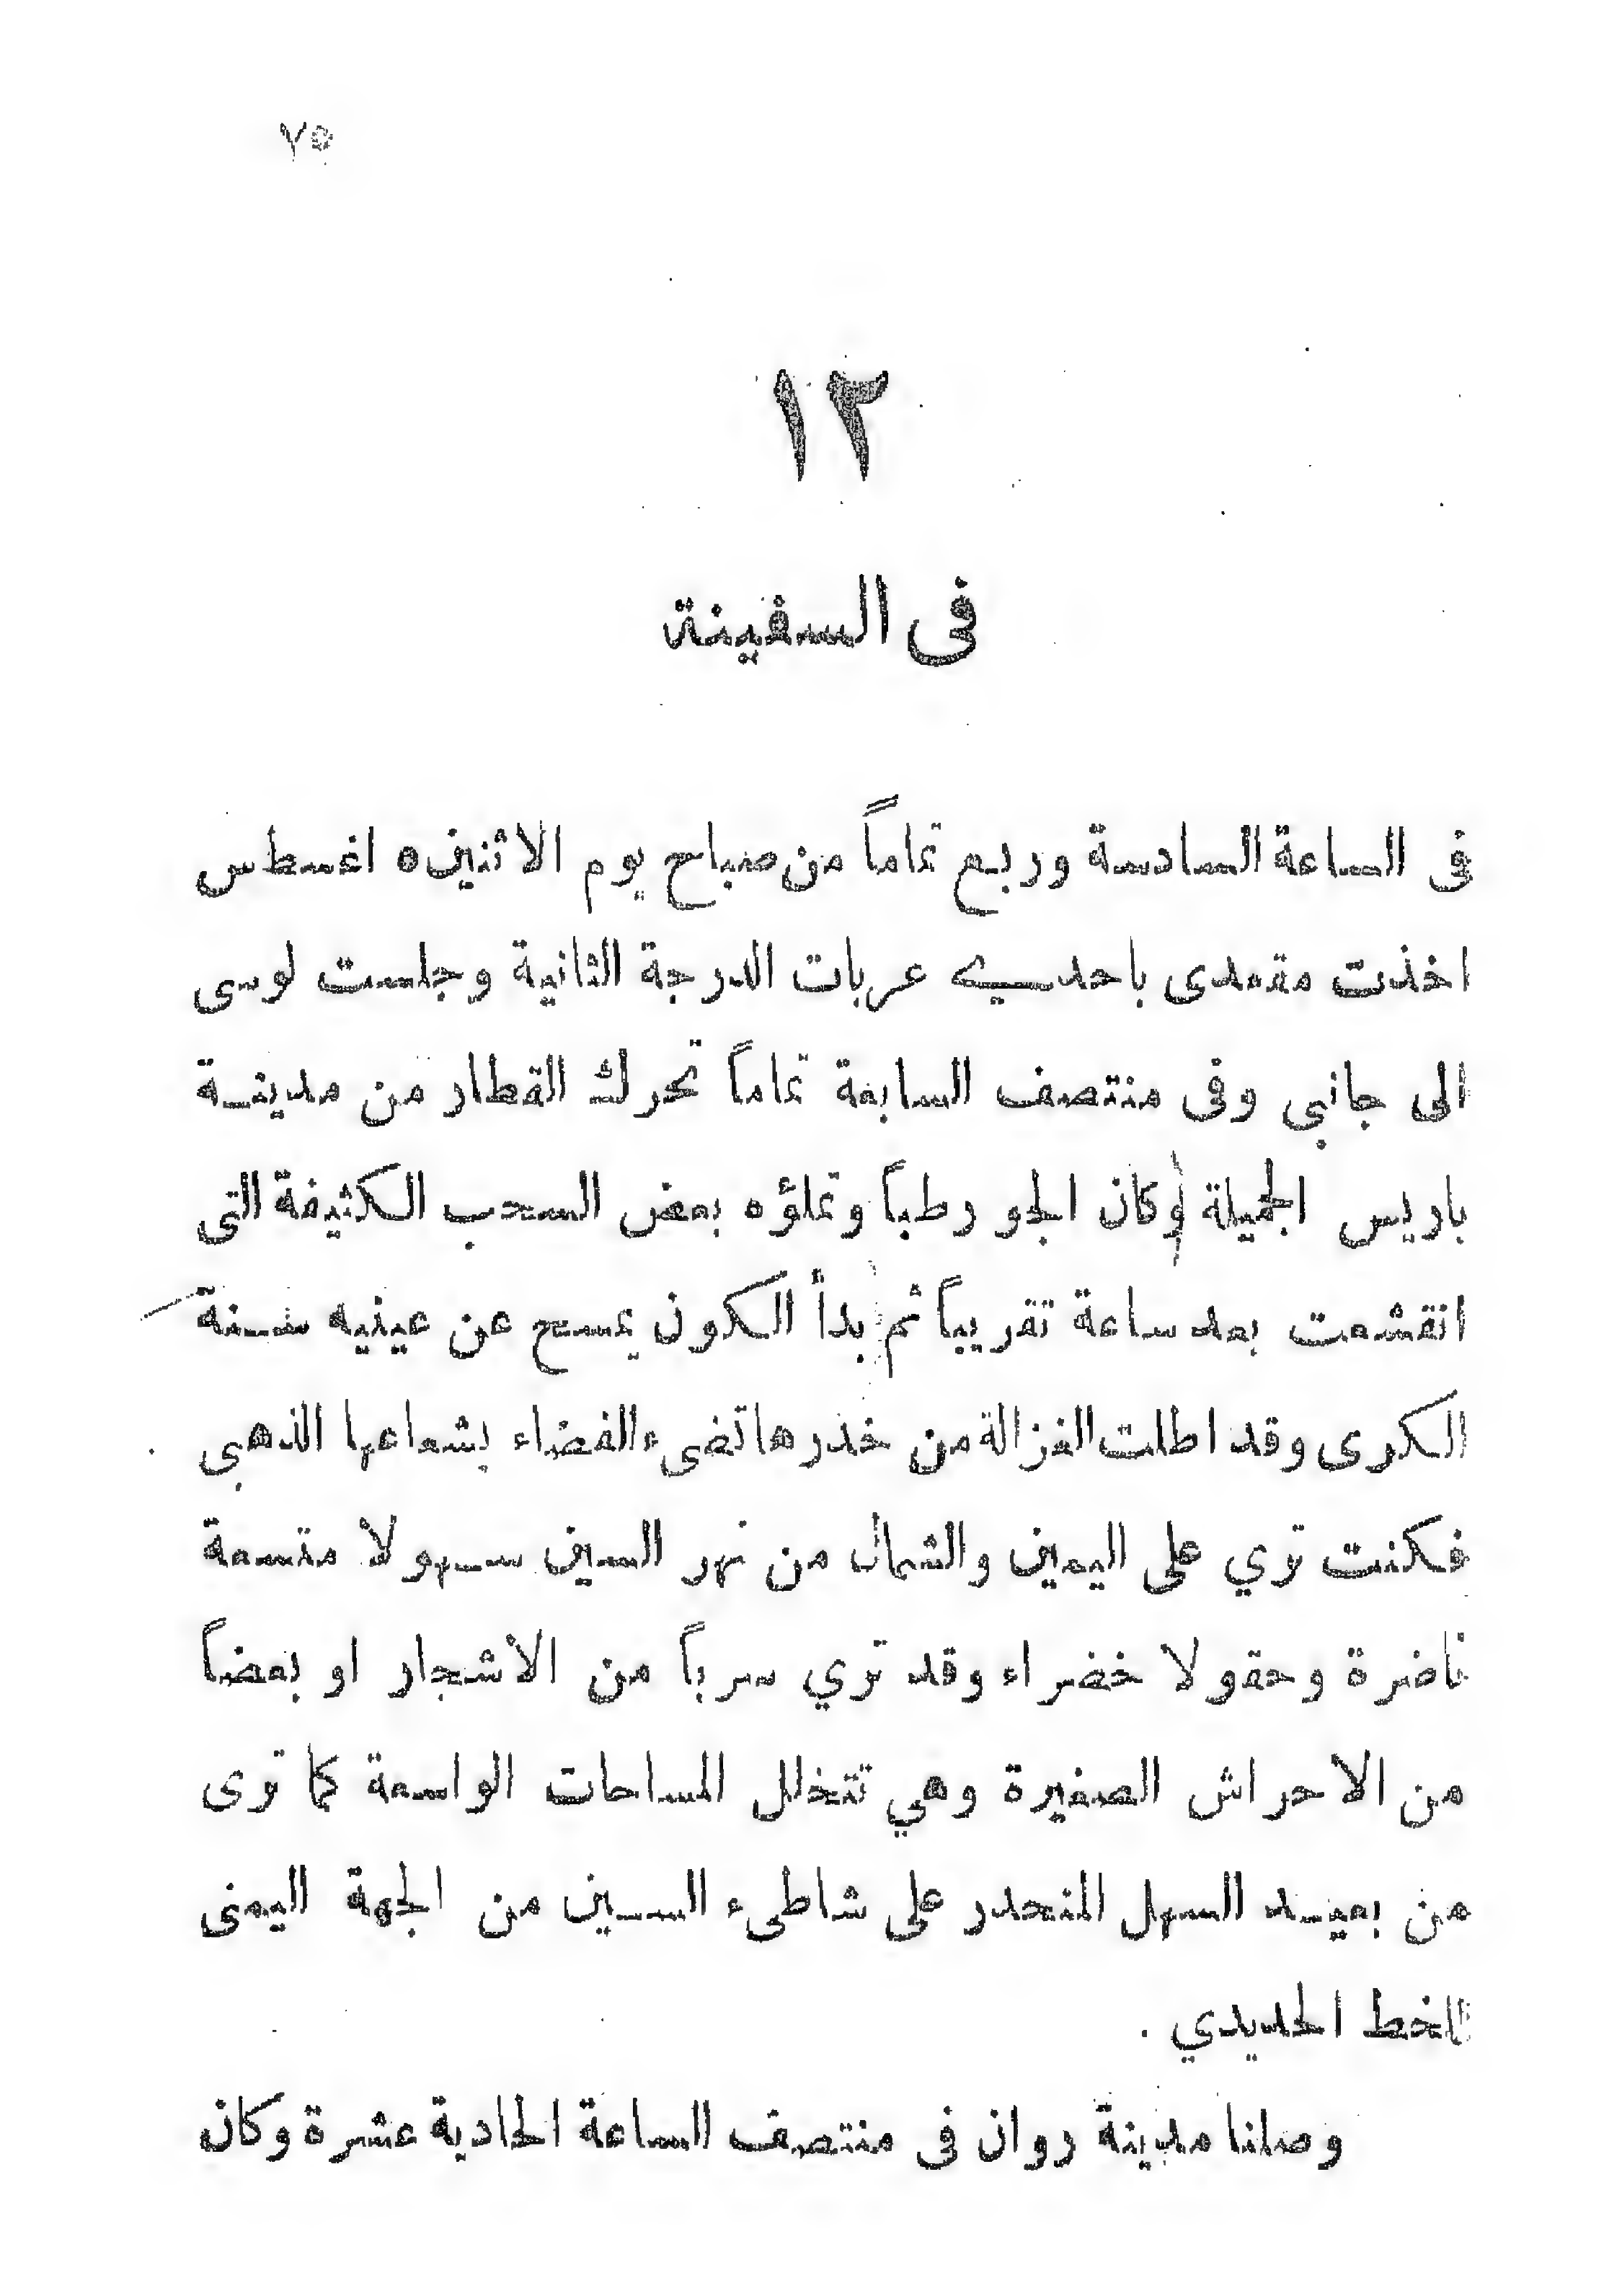 ٧٥
١٢
فى السفينة
فى الساعة السادسة وربع تماماً من صباح يوم الاثنين ٥ اغسطس
اخذت مقعدى باحدى عربات الدرجة الثانية وجلست لوسى
الى جانبي وفى منتصف السابعة تماماً تحرك القطار من مدينة
باريس الجميلة وكان الجو رطباً وتملؤه بعض السحب الكثيفة التى
انقشعت بعد ساعة تقريباً ثم بدأ الكون يمسح عن عينيه سنة
الكرى وقد اطلت الغزالة من خدرها تضىء الفضاء بشعاعها الذهبي
فكنت تري على اليمين والشمال من نهر السين سهولا متسعة
ناضرة وحقولا خضراء وقد تري سرباً من الاشجار او بعضاً
من الاحراش الصغيرة وهي تتخلل المساحات الواسعة كما ترى
من بعيد السهل المنحدر على شاطىء السين من الجهة اليمنى
للخط الحديدي .
وصلنا مدينة روان فى منتصف الساعة الحادية عشرة وكان